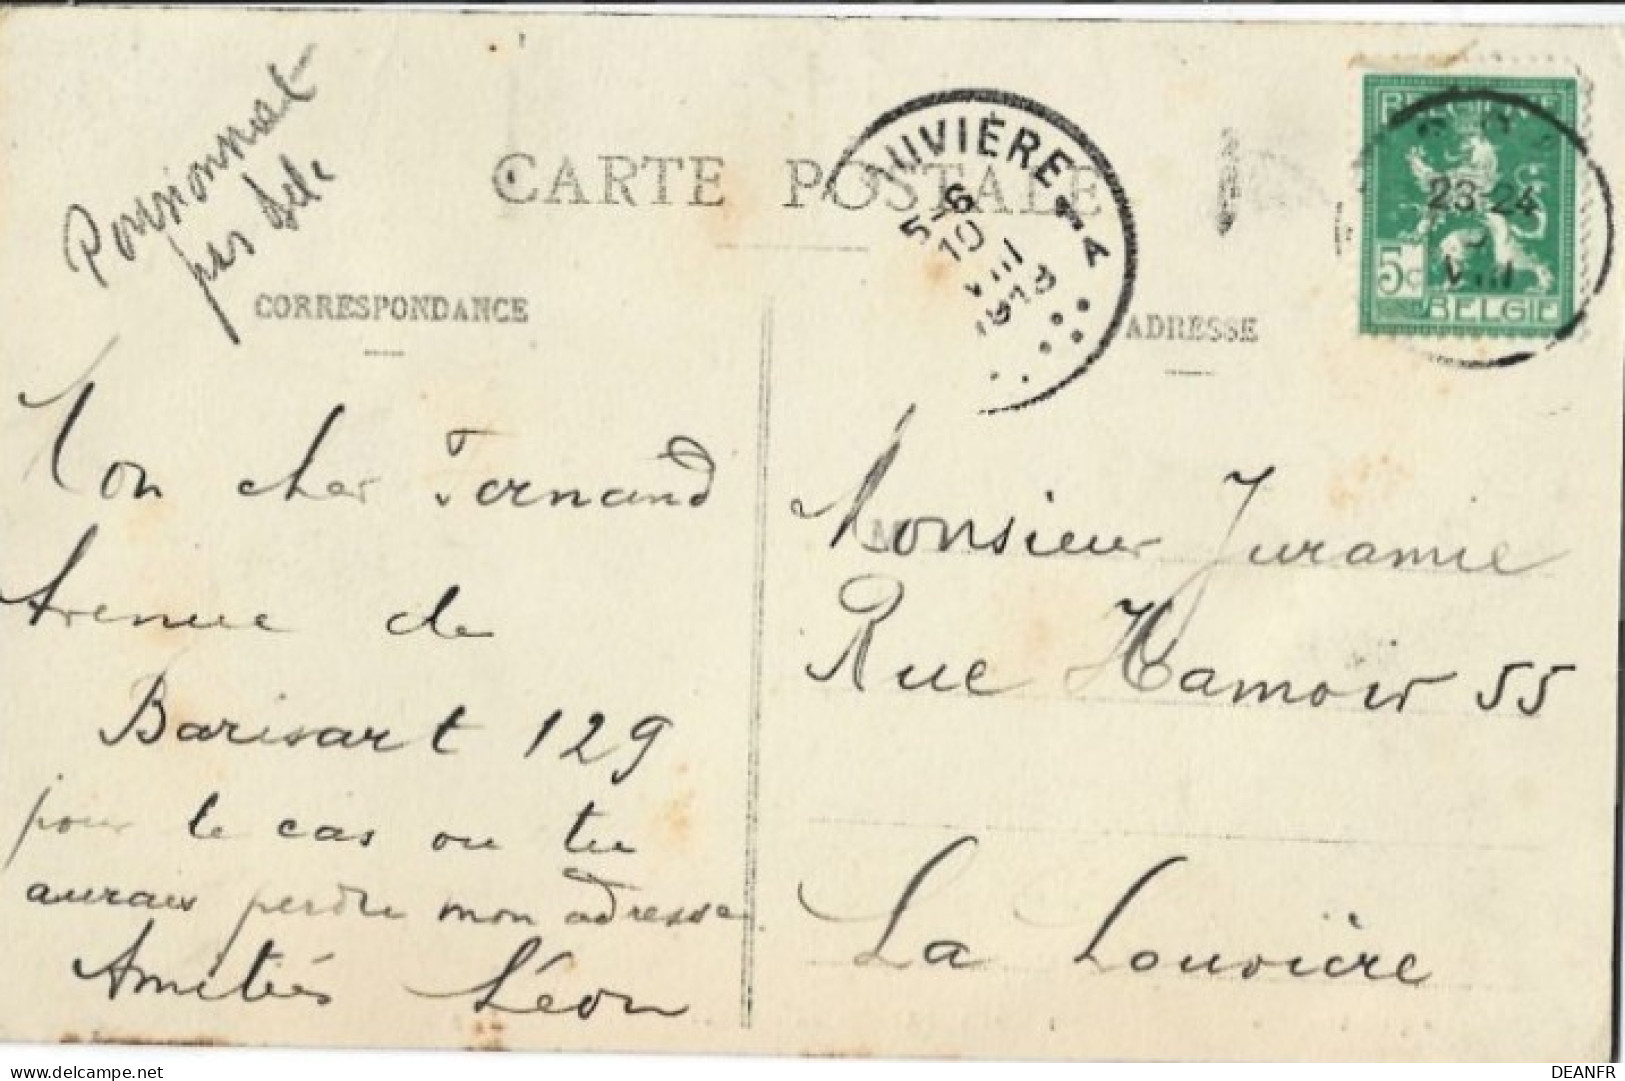 CARTE POSTALE
CORRESPONDANCE
ADRESSE
Mon cher Fernand
Avenue de
Barisart 129
pour le cas ou tu
aurais perdu mon adresse
Amitiés Léon
Monsieur Juramie
Rue Hamoir 55
La Louvière
BELGIQUE
5c
BELGIE
23-24
VIII
OUVIÈRE 1A
5-6
10
VIII
1913
delcampe.net
DEANFR